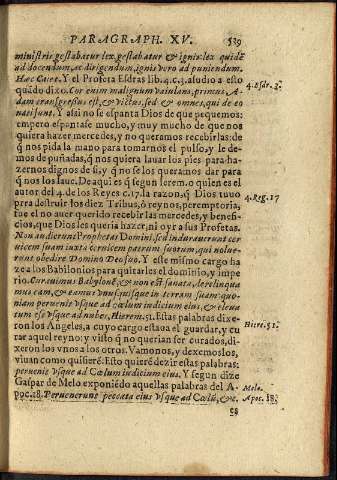 PARAGRAPH. XV. 539
ministris gestabatur lex, gestabatur & ignis: lex quidē
ad docendum, ac dirigendum, ignis vero ad puniendum.
Hæc Caiet. Y el Profeta Esdras lib. 4. c. 3. aludio a esto
quādo dixo. Cor enim malignum baiulans, primus A-
dam transgressus est, & victus, sed & omnes, qui de eo
nati sunt. Y assi no se espanta Dios de que pequemos:
empero espantase mucho, y muy mucho de que nos
quiera hazer mercedes, y no queramos recebirlas: de
q̃ nos pida la mano para tomarnos el pulso, y le de-
mos de puñadas, q̃ nos quiera lauar los pies para ha-
zernos dignos de si, y q̃ no se los queramos dar para
q̃ nos los laue. De aqui es q̃ segun Ierem. o quien es el
autor del 4. de los Reyes c. 17. la razon, q̃ Dios tuuo
pra destruir los diez Tribus, ò reynos, peremptoria,
fue el no auer querido recebir las mercedes, y benefi-
cios, que Dios les queria hazer, ni oyr a sus Profetas.
Non audierunt Prophetas Domini, sed indurauerunt cer
uicem suam iuxta ceruicem patrum suorum, qui nolue-
runt obedire Domino Deo suo. Y este mismo cargo ha
ze a los Babilonios para quitarles el dominio, y impe
rio. Curauimus Babylonē, & non est sanata, derelinqua
mus eam, & eamus vnusquisque in terram suam: quo-
niam peruenit vsque ad cœlum iudicium eius, & eleua
tum est vsque ad nubes, Hierem. 51. Estas palabras dixe
ron los Angeles, a cuyo cargo estaua el guardar, y cu
rar aquel reyno: y visto q̃ no querian ser curados, di-
xeron los vnos a los otros. Vamonos, y dexemoslos,
viuan como quisierē: Esto quiere dezir estas palabras:
peruenit vsque ad Cœlum iudicium eius. Y segun dize
Gaspar de Melo exponiēdo aquellas palabras del A-
poc. 18. Peruenerunt peccata eius vsque ad Cœlū, &c.
4. Esdr. 3.
4. Reg. 17
Hiere. 51.
Melo.
Apoc. 18.